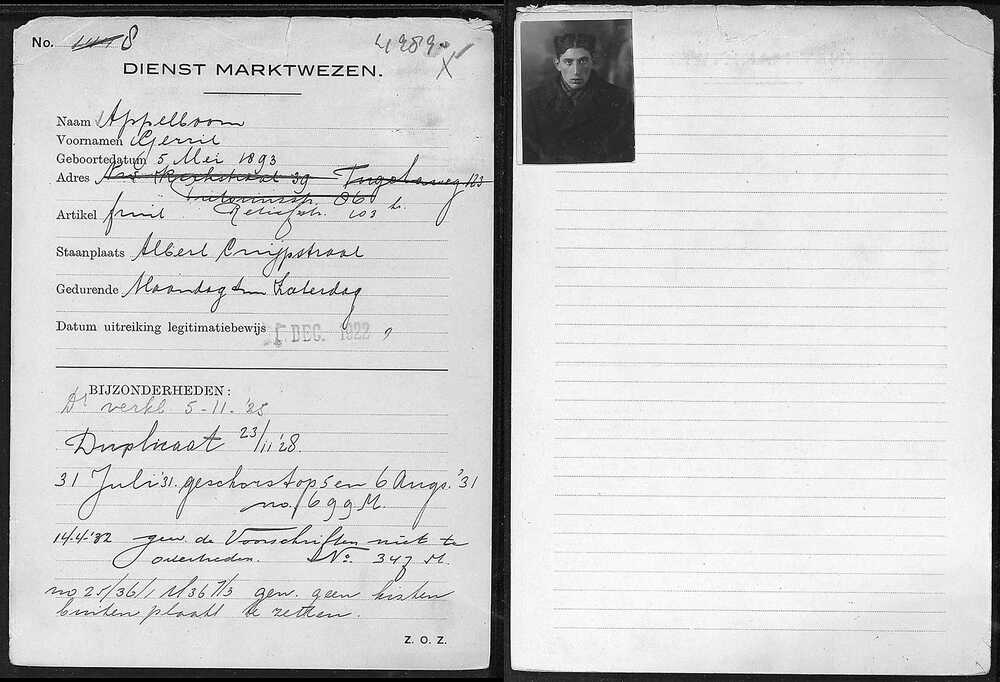 No. 8 4989
DIENST MARKTWEZEN.
Naam Appelboom
Voornamen Gerrit
Geboortedatum 5 Mei 1893
Adres Nwe Kerkstraat 39 Tugelaweg 103
86
Artikel fruit Retiefstr. 103 hs.
Staanplaats Albert Cuijpstraat
Gedurende Maandag t/m Zaterdag
Datum uitreiking legitimatiebewijs 1 DEC. 1922
BIJZONDERHEDEN:
verkl 5-11-'25
Duplicaat 23/11 '28.
31 Juli '31. geschorst op 5 en 6 Augs. '31
no. 699 M.
14-4-'32 gew. de Voorschriften niet te
overtreden. No. 347 M.
no 25/36/1 M 367/3 gew. geen kisten
buiten plaats te zetten.
Z. O. Z.